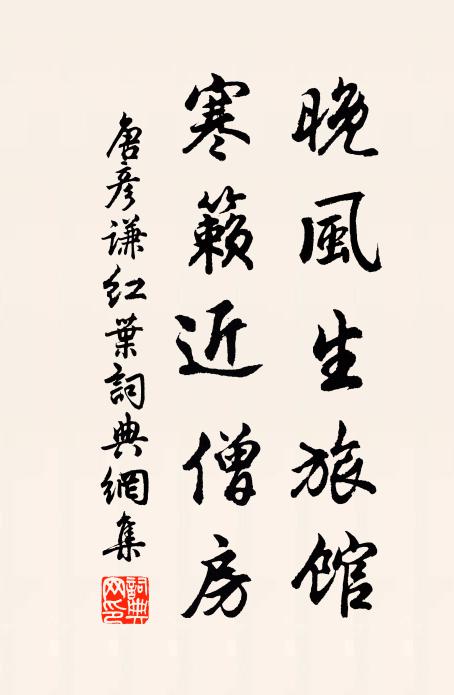 晚風生旅館
寒籟近僧房
唐彥謙紅葉詞典網集
詞典網印